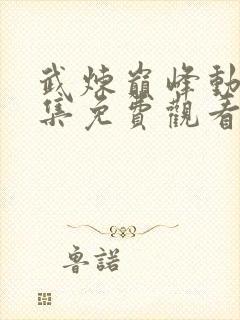 武煉巔峰動
集免費觀看
魯諾